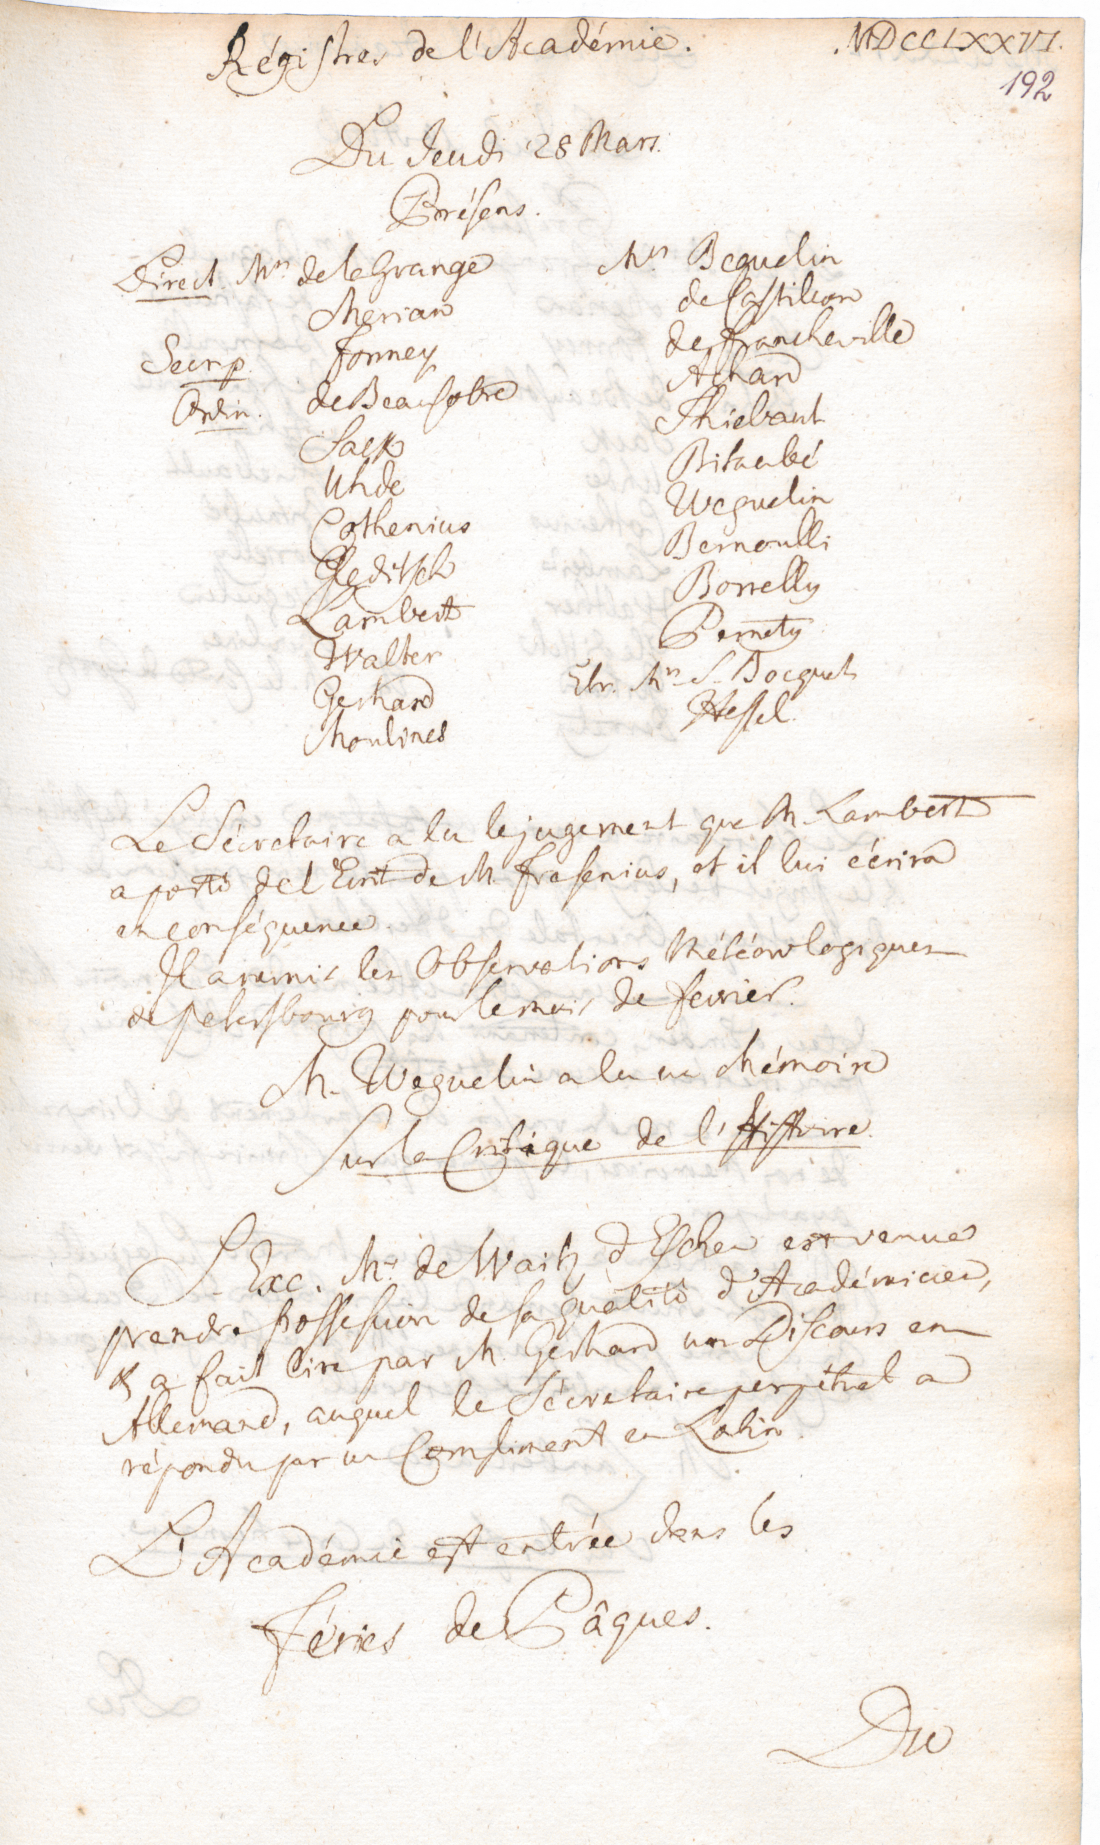 Régistres de l'Académie. MDCCLXXVI.
192
Du Jeudi 28 Mars.
Présens.
Direct. Mrs de la Grange
Merian
Secr. p. Formey
Ordin. de Beausobre
Sack
Uhde
Cothenius
Gleditsch
Lambert
Walter
Gerhard
Moulines
Mrs Beguelin
de Castillon
de Francheville
Achard
Thiebault
Bitaubé
Weguelin
Bernoulli
Borrelly
Pernety
Etr. Mrs S. Bocquet
Hessel.
Le Sécretaire a lu le jugement que M. Lambert
a porté de l'Ecrit de M. Fresenius, et il lui écrira
en conséquence.
Il a remis les Observations Météorologiques
de Petersbourg pour le mois de fevrier.
M. Weguelin a lu un Mémoire
sur la Critique de l'Histoire.
S. Exc. Mr de Waitz, d'Eschen est venue
prendre possession de sa qualité d'Académicien,
& a fait lire par M. Gerhard un Discours en
Allemand, auquel le Sécretaire perpétuel a
répondu par un Compliment en Latin.
L'Académie est entrée dans les
féries de Pâques.
Du